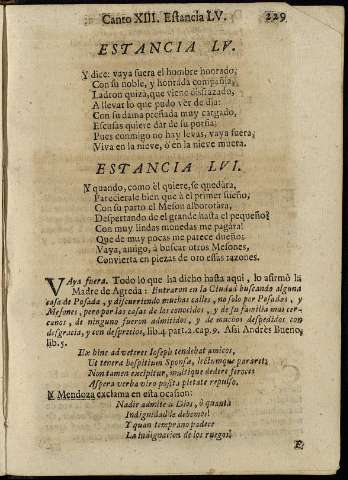 Canto XIII. Estancia LV. 229
ESTANCIA LV.
Y dice: vaya fuera el hombre honrado,
Con su noble, y honrada compañia,
Ladron quizá, que viene disfrazado,
A llevar lo que pudo vèr de dia:
Con su dama preñada muy cargado,
Escusas quiere dar de su porfia;
Pues conmigo no hay levas, vaya fuera,
Viva en la nieve, ò en la nieve muera.
ESTANCIA LVI.
Y quando, como èl quiere, se quedàra,
Parecierale bien que à el primer sueño,
Con su parto el Meson alborotàra,
Despertando de el grande hasta el pequeño?
Con muy lindas monedas me pagàra!
Que de muy pocas me parece dueño:
Vaya, amigo, à buscar otros Mesones,
Convierta en piezas de oro essas razones.
VAya fuera. Todo lo que ha dicho hasta aqui, lo afirmò la
Madre de Agreda: Entraron en la Ciudad buscando alguna
casa de Posada, y discurriendo muchas calles, no solo por Posadas, y
Mesones, pero por las casas de los conocidos, y de su familia mas cer-
canos, de ninguno fueron admitidos, y de muchos despedidos con
desgracia, y con desprecios, lib. 4. part. 2. cap. 9. Assi Andrès Bueno,
lib. 5.
Ut tenera hospitium Sponsæ, lectumque pararet;
Non tamen excipitur, multique dedere feroces
Aspera verba viro posita pietate repulso.
Y Mendoza exclama en esta ocasion:
Nadie admite à Dios, ò quanta
Indignidad le debemos!
Y quan temprano padece
La indignacion de los ruegos!